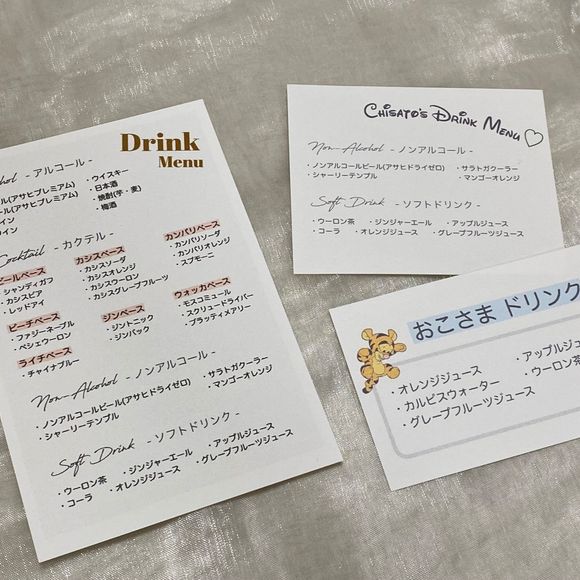 Drink
Menu
- アルコール -
・ウイスキー
・日本酒
・焼酎(芋・麦)
・梅酒
ル(アサヒプレミアム)
ル(アサヒプレミアム)
イン
イン
Cocktail - カクテル -
ビールベース
・シャンディガフ
・カシスビア
・レッドアイ
カシスベース
・カシスソーダ
・カシスオレンジ
・カシスウーロン
・カシスグレープフルーツ
カンパリベース
・カンパリソーダ
・カンパリオレンジ
・スプモーニ
ピーチベース
・ファジーネーブル
・ペシェウーロン
ジンベース
・ジントニック
・ジンバック
ウォッカベース
・モスコミュール
・スクリュードライバー
・ブラッティメアリー
ライチベース
・チャイナブルー
Non-Alcohol - ノンアルコール -
・ノンアルコールビール(アサヒドライゼロ)
・サラトガクーラー
・シャーリーテンプル
・マンゴーオレンジ
Soft Drink - ソフトドリンク -
・ウーロン茶
・ジンジャーエール
・アップルジュース
・コーラ
・オレンジジュース
・グレープフルーツジュース
Chisato's Drink Menu
Non-Alcohol - ノンアルコール -
・ノンアルコールビール(アサヒドライゼロ)
・サラトガクーラー
・シャーリーテンプル
・マンゴーオレンジ
Soft Drink - ソフトドリンク -
・ウーロン茶
・ジンジャーエール
・アップルジュース
・コーラ
・オレンジジュース
・グレープフルーツジュース
おこさま ドリンク
・オレンジジュース
・アップルジュ
・カルピスウォーター
・ウーロン茶
・グレープフルーツジュース